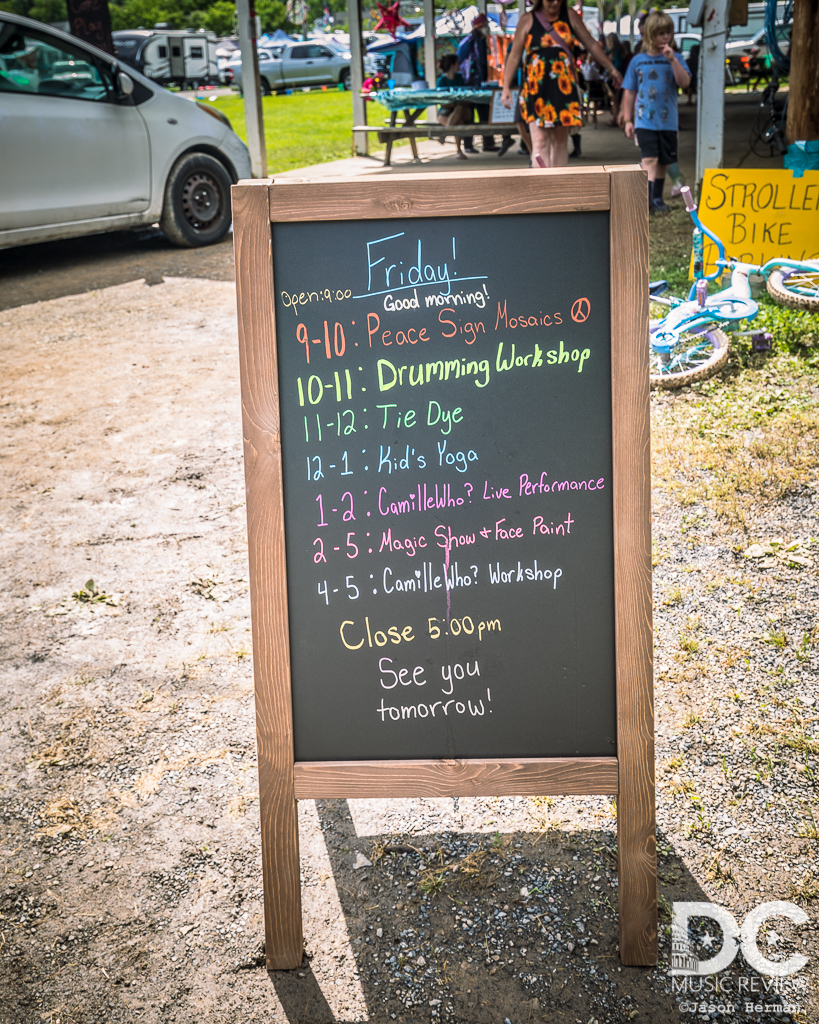 Friday!
Open:9:00
Good morning!
9-10: Peace Sign Mosaics
10-11: Drumming Workshop
11-12: Tie Dye
12-1: Kid's Yoga
1-2: CamilleWho? Live Performance
2-5: Magic Show & Face Paint
4-5: CamilleWho? Workshop
Close 5:00pm
See you
tomorrow!
STROLLER
BIKE
DC
MUSIC REVIEW
©Jason Herman